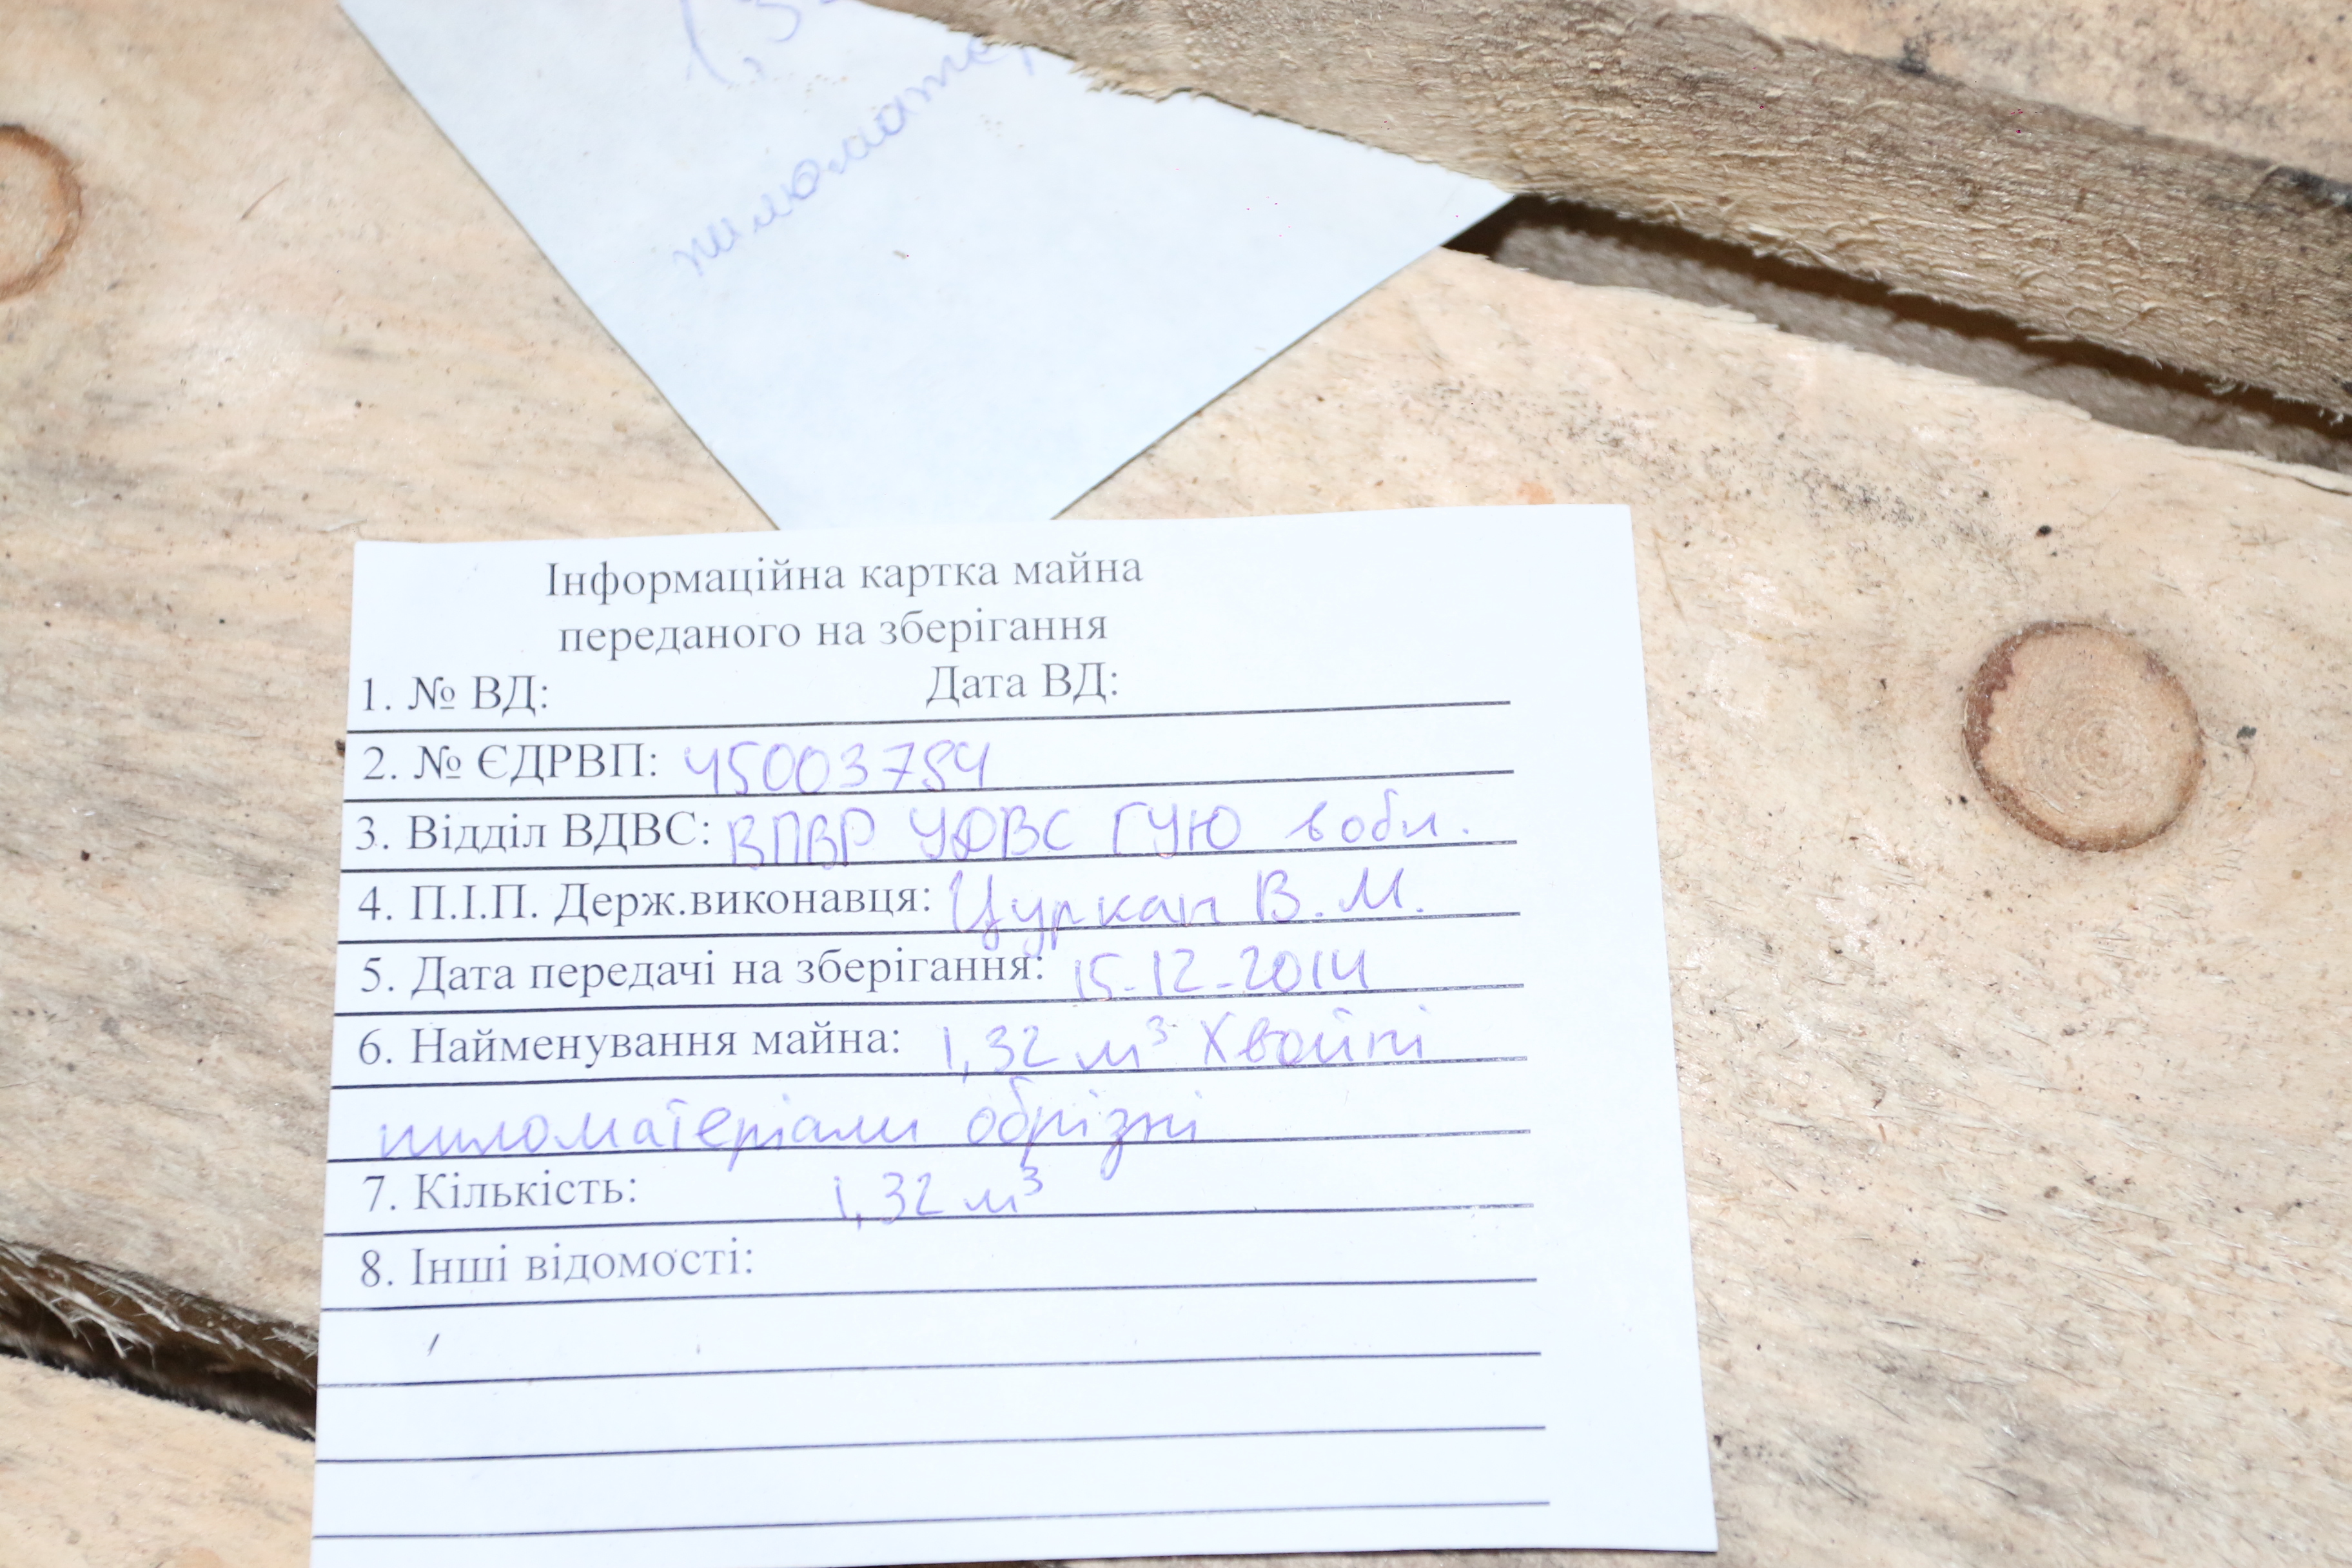 1,3
пиломатер
Інформаційна картка майна
переданого на зберігання
1. № ВД: Дата ВД:
2. № ЄДРВП: 45003754
3. Відділ ВДВС: ВПВР УДВС ГУЮ в обл.
4. П.І.П. Держ.виконавця: Цуркан В.М.
5. Дата передачі на зберігання: 15-12-2014
6. Найменування майна: 1,32 м³ Хвойні
пиломатеріали обрізні
7. Кількість: 1,32 м³
8. Інші відомості: